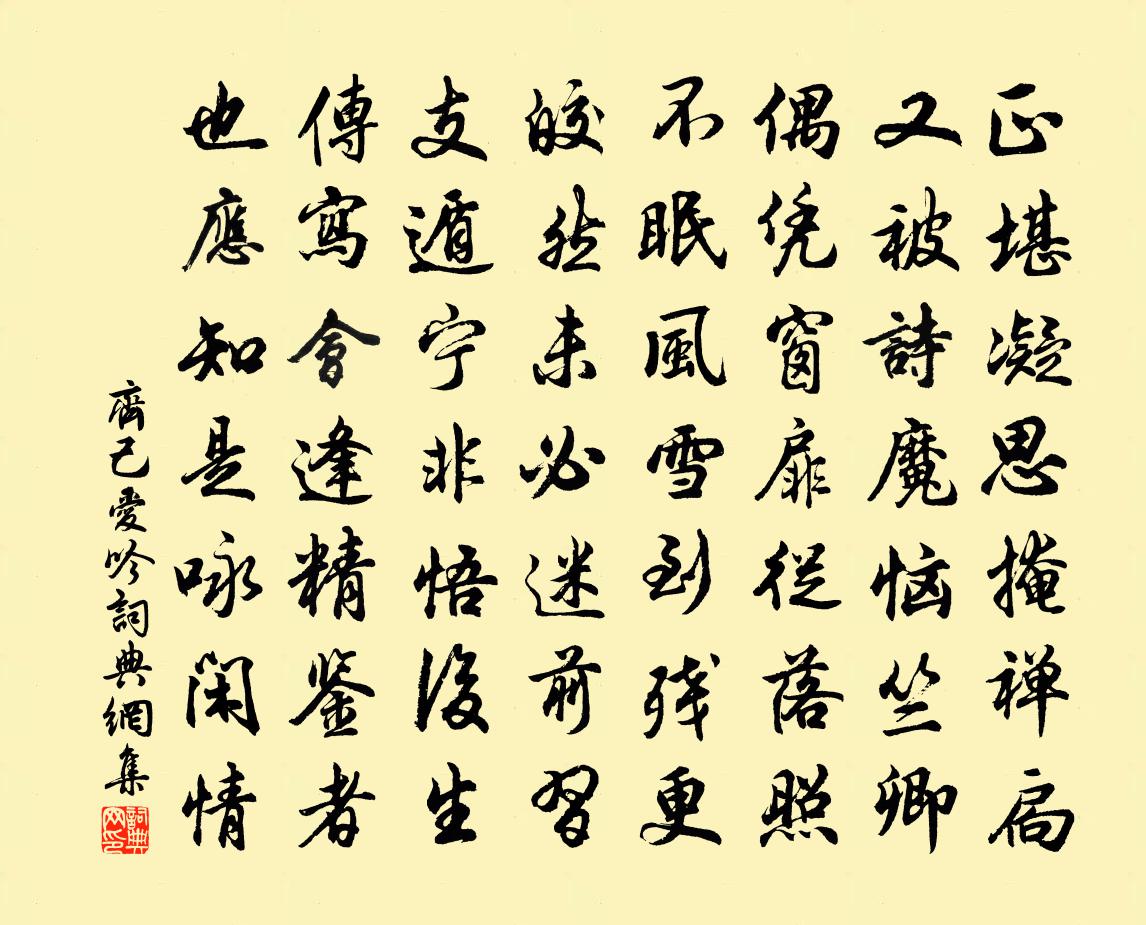 正堪凝思掩禅扃
又被詩魔惱竺卿
偶凭窗扉從落照
不眠風雪到残更
皎然未必迷前習
支遁宁非悟後生
傳寫會逢精鉴者
也應知是咏闲情
齊己愛吟詞典網集
詞典网印